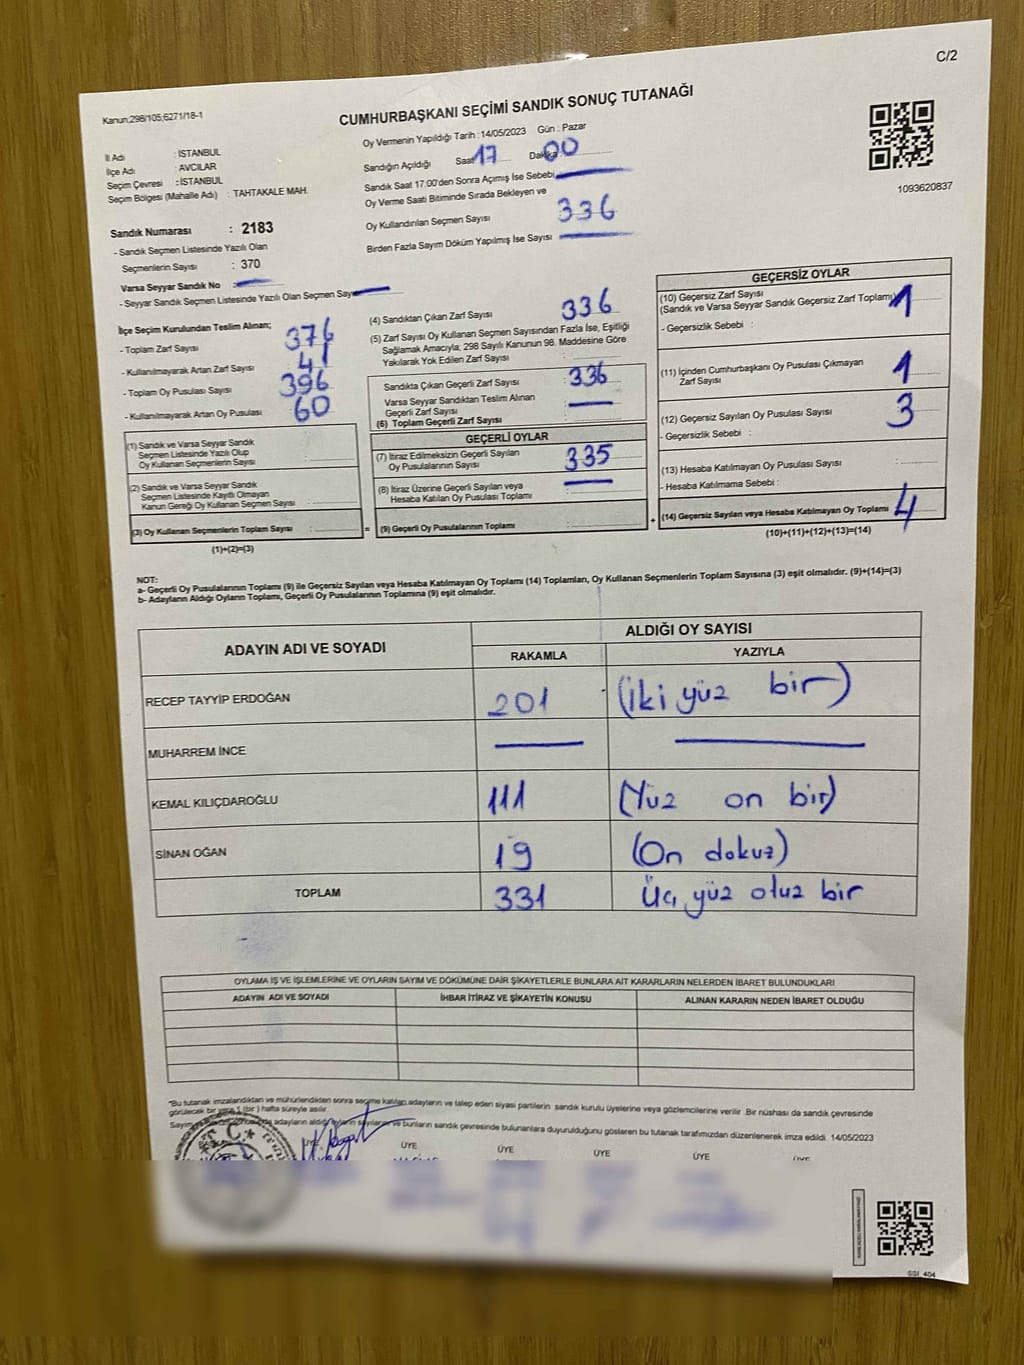 C/2
Kanun;298/105;6271/18-1
CUMHURBAŞKANI SEÇİMİ SANDIK SONUÇ TUTANAĞI
İl Adı : İSTANBUL
İlçe Adı : AVCILAR
Seçim Çevresi : İSTANBUL
Seçim Bölgesi (Mahalle Adı) : TAHTAKALE MAH.
Oy Vermenin Yapıldığı Tarih : 14/05/2023 Gün : Pazar
Sandığın Açıldığı Saat 17 Dakika 00
Sandık Saat 17:00'den Sonra Açımış İse Sebebi
Oy Verme Saati Bitiminde Sırada Bekleyen ve
Oy Kullandırılan Seçmen Sayısı 336
Birden Fazla Sayım Döküm Yapılmış İse Sayısı
1093620837
Sandık Numarası : 2183
- Sandık Seçmen Listesinde Yazılı Olan
Seçmenlerin Sayısı : 370
Varsa Seyyar Sandık No :
- Seyyar Sandık Seçmen Listesinde Yazılı Olan Seçmen
İlçe Seçim Kurulundan Teslim Alınan;
- Toplam Zarf Sayısı 376
- Kullanılmayarak Artan Zarf Sayısı 41
- Toplam Oy Pusulası Sayısı 396
- Kullanılmayarak Artan Oy Pusulası 60
(1) Sandık ve Varsa Seyyar Sandık
Seçmen Listesinde Yazılı Olup
Oy Kullanan Seçmenlerin Sayısı :
(2) Sandık ve Varsa Seyyar Sandık
Seçmen Listesinde Kayıtlı Olmayan
Kanun Gereği Oy Kullanan Seçmen Sayısı :
(3) Oy Kullanan Seçmenlerin Toplam Sayısı : =
(1)+(2)=(3)
(4) Sandıktan Çıkan Zarf Sayısı 336
(5) Zarf Sayısı Oy Kullanan Seçmen Sayısından Fazla İse, Eşitliği
Sağlamak Amacıyla; 298 Sayılı Kanunun 98. Maddesine Göre
Yakılarak Yok Edilen Zarf Sayısı :
Sandıkta Çıkan Geçerli Zarf Sayısı : 336
Varsa Seyyar Sandıktan Teslim Alınan
Geçerli Zarf Sayısı
(6) Toplam Geçerli Zarf Sayısı :
GEÇERLİ OYLAR
(7) İtiraz Edilmeksizin Geçerli Sayılan
Oy Pusulalarının Sayısı 335
(8) İtiraz Üzerine Geçerli Sayılan veya
Hesaba Katılan Oy Pusulası Toplamı
(9) Geçerli Oy Pusulalarının Toplamı : +
GEÇERSİZ OYLAR
(10) Geçersiz Zarf Sayısı
(Sandık ve Varsa Seyyar Sandık Geçersiz Zarf Toplamı) 1
- Geçersizlik Sebebi :
(11) İçinden Cumhurbaşkanı Oy Pusulası Çıkmayan
Zarf Sayısı 1
(12) Geçersiz Sayılan Oy Pusulası Sayısı 3
- Geçersizlik Sebebi :
(13) Hesaba Katılmayan Oy Pusulası Sayısı :
- Hesaba Katılmama Sebebi :
(14) Geçersiz Sayılan veya Hesaba Katılmayan Oy Toplamı 4
(10)+(11)+(12)+(13)=(14)
NOT:
a- Geçerli Oy Pusulalarının Toplamı (9) ile Geçersiz Sayılan veya Hesaba Katılmayan Oy Toplamı (14) Toplamları, Oy Kullanan Seçmenlerin Toplam Sayısına (3) eşit olmalıdır. (9)+(14)=(3)
b- Adayların Aldığı Oyların Toplamı, Geçerli Oy Pusulalarının Toplamına (9) eşit olmalıdır.
ADAYIN ADI VE SOYADI ALDIĞI OY SAYISI
RAKAMLA YAZIYLA
RECEP TAYYİP ERDOĞAN 201 (İki yüz bir)
MUHARREM İNCE
KEMAL KILIÇDAROĞLU 111 (Yüz on bir)
SİNAN OĞAN 19 (On dokuz)
TOPLAM 331 Üç yüz otuz bir
OYLAMA İŞ VE İŞLEMLERİNE VE OYLARIN SAYIM VE DÖKÜMÜNE DAİR ŞİKAYETLERLE BUNLARA AİT KARARLARIN NELERDEN İBARET BULUNDUKLARI
ADAYIN ADI VE SOYADI İHBAR İTİRAZ VE ŞİKAYETİN KONUSU ALINAN KARARIN NEDEN İBARET OLDUĞU
"Bu tutanak imzalandıktan ve mühürlendikten sonra seçime katılan adayların ve talep eden siyasi partilerin sandık kurulu üyelerine veya gözlemcilerine verilir. Bir nüshası da sandık çevresinde
görülecek bir yere 1 (bir) hafta süreyle asılır.
adayların aldığı oyların sayılarını ve bunların sandık çevresinde bulunanlara duyurulduğunu gösteren bu tutanak tarafımızdan düzenlenerek imza edildi. 14/05/2023
T.C.
ÜYE ÜYE ÜYE ÜYE ÜYE